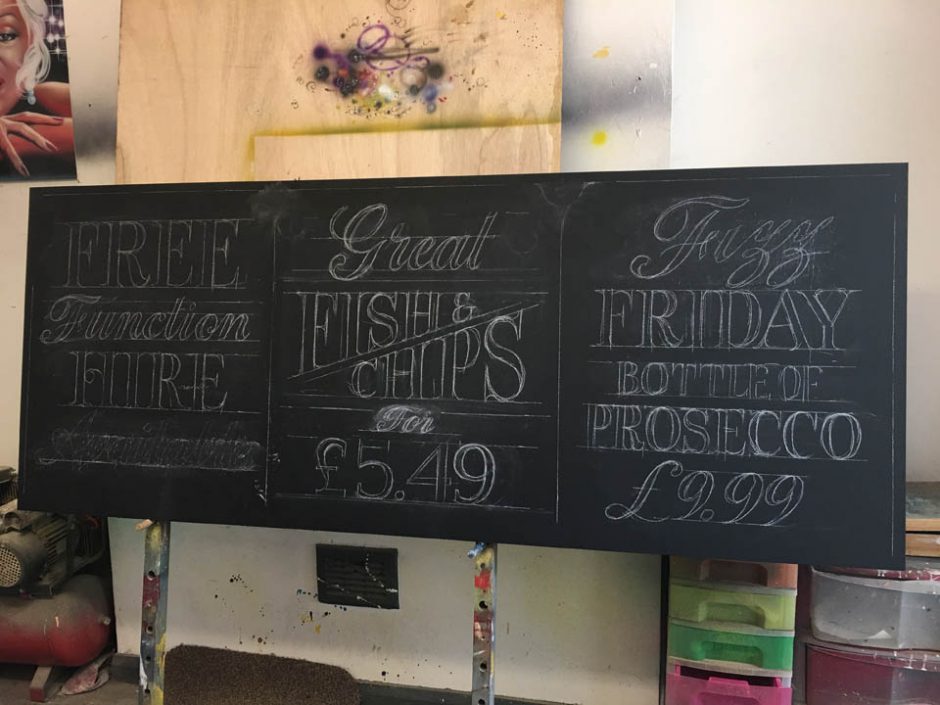 FREE
Function
HIRE
Great
FISH &
CHIPS
For
£5.49
Fizzy
FRIDAY
BOTTLE OF
PROSECCO
£9.99